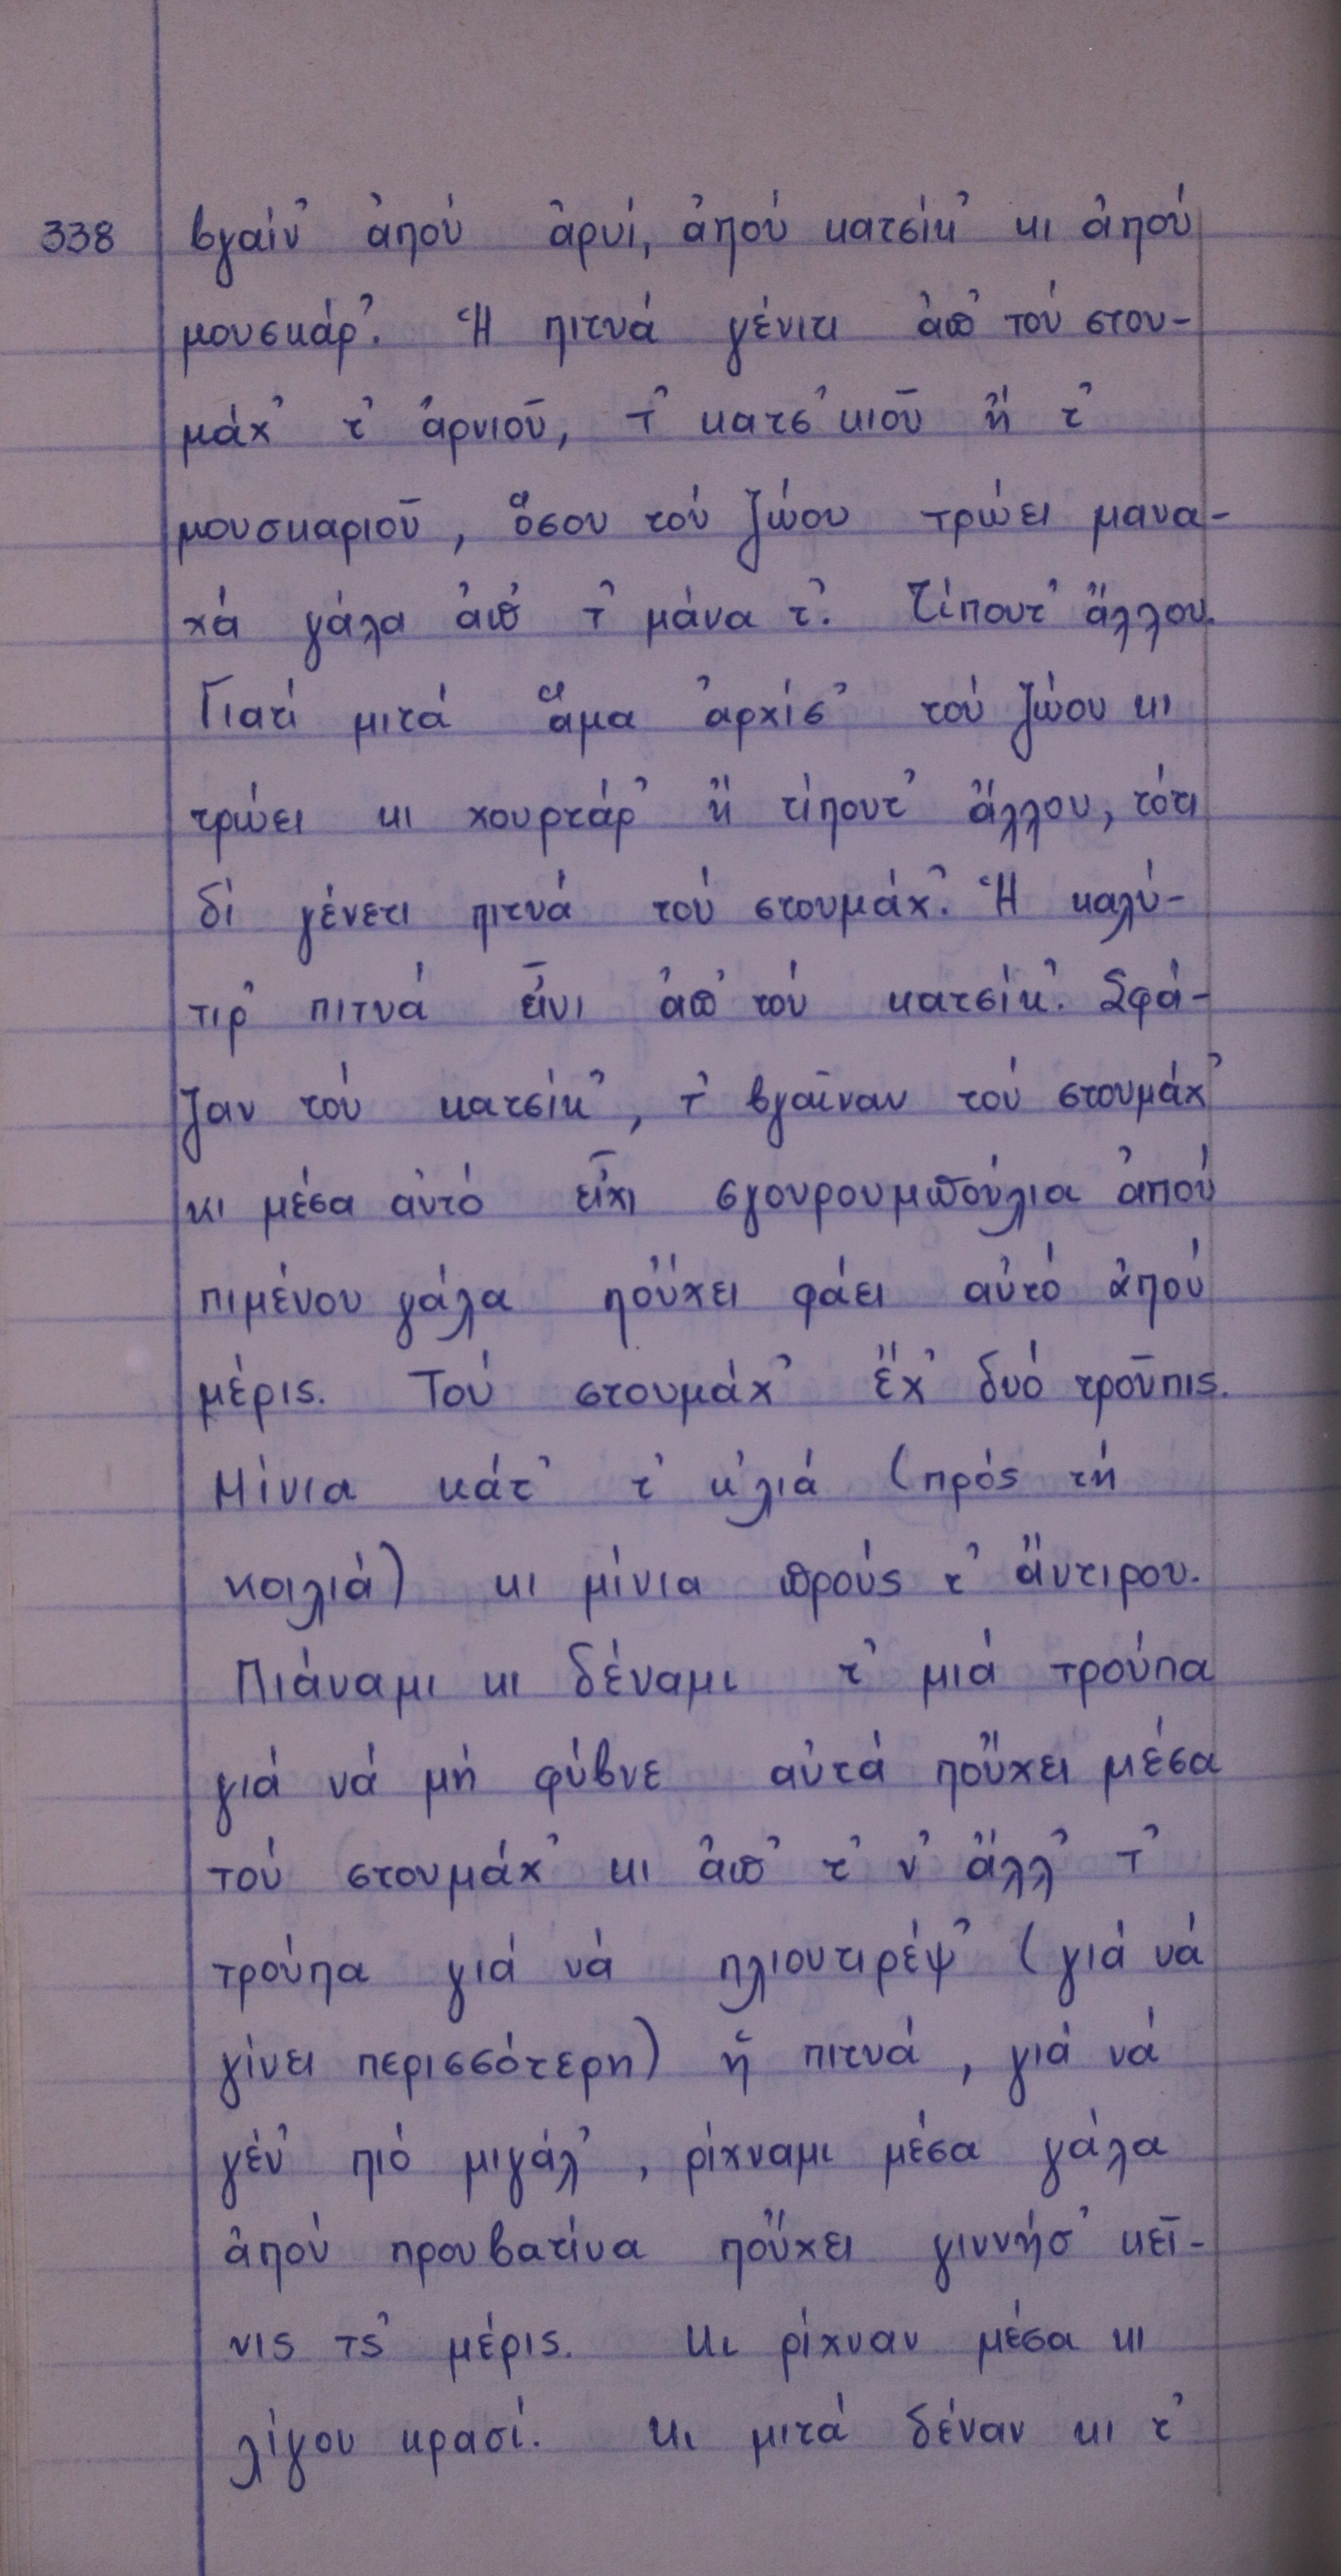 338 βγαίν᾿ ἀπού ἀρνί, ἀπού κατσίκ᾿ κι ἀπού
μουσκάρ᾿. Ἡ πιτυά γένιτι ἀπ᾿ τού στου-
μάχ᾿ τ᾿ ἀρνιοῦ, τ᾿ κατσ᾿κιοῦ ἤ τ᾿
μουσκαριοῦ, ὅσου τού ζώου τρώει μανα-
χά γάλα ἀπ᾿ τ᾿ μάνα τ᾿. Τίπουτ᾿ ἄλλου.
Γιατί μιτά ἅμα ἀρχίσ᾿ τού ζώου κι
τρώει κι χουρτάρ᾿ ἤ τίπουτ᾿ ἄλλου, τότι
δέ γένετι πιτυά τού στουμάχ᾿. Ἡ καλύ-
τιρ᾿ πιτυά εἶνι ἀπ᾿ τού κατσίκ᾿. Σφά-
ζαν τού κατσίκ᾿, τ᾿ βγαῖναν τού στουμάχ᾿
κι μέσα αὐτό εἶχι σγουρουμπούλια ἀπού
πιμένου γάλα πούχει φάει αὐτό ἀπού
μέρις. Τού στουμάχ᾿ ἔχ᾿ δυό τροῦπις.
Μίνια κάτ᾿ τ᾿ κ᾿λιά (πρός τή
κοιλιά) κι μίνια προύς τ᾿ ἄντιρου.
Πιάναμι κι δέναμι τ᾿ μιά τρούπα
γιά νά μή φύβνε αὐτά πὄυχει μέσα
τού στουμάχ᾿ κι ἀπ᾿ τ᾿ ν᾿ ἄλλ᾿ τ᾿
τρούπα γιά νά πλιουτιρέψ᾿ (γιά νά
γίνει περισσότερη) ἤ πιτυά, γιά νά
γέν᾿ πιό μιγάλ᾿, ρίχναμι μέσα γάλα
ἀπού προυβατίνα πὄυχει γιννήσ᾿ κεῖ-
νις τς᾿ μέρις. Κι ρίχναν μέσα κι
λίγου κρασί. Κι μιτά δέναν κι τ᾿